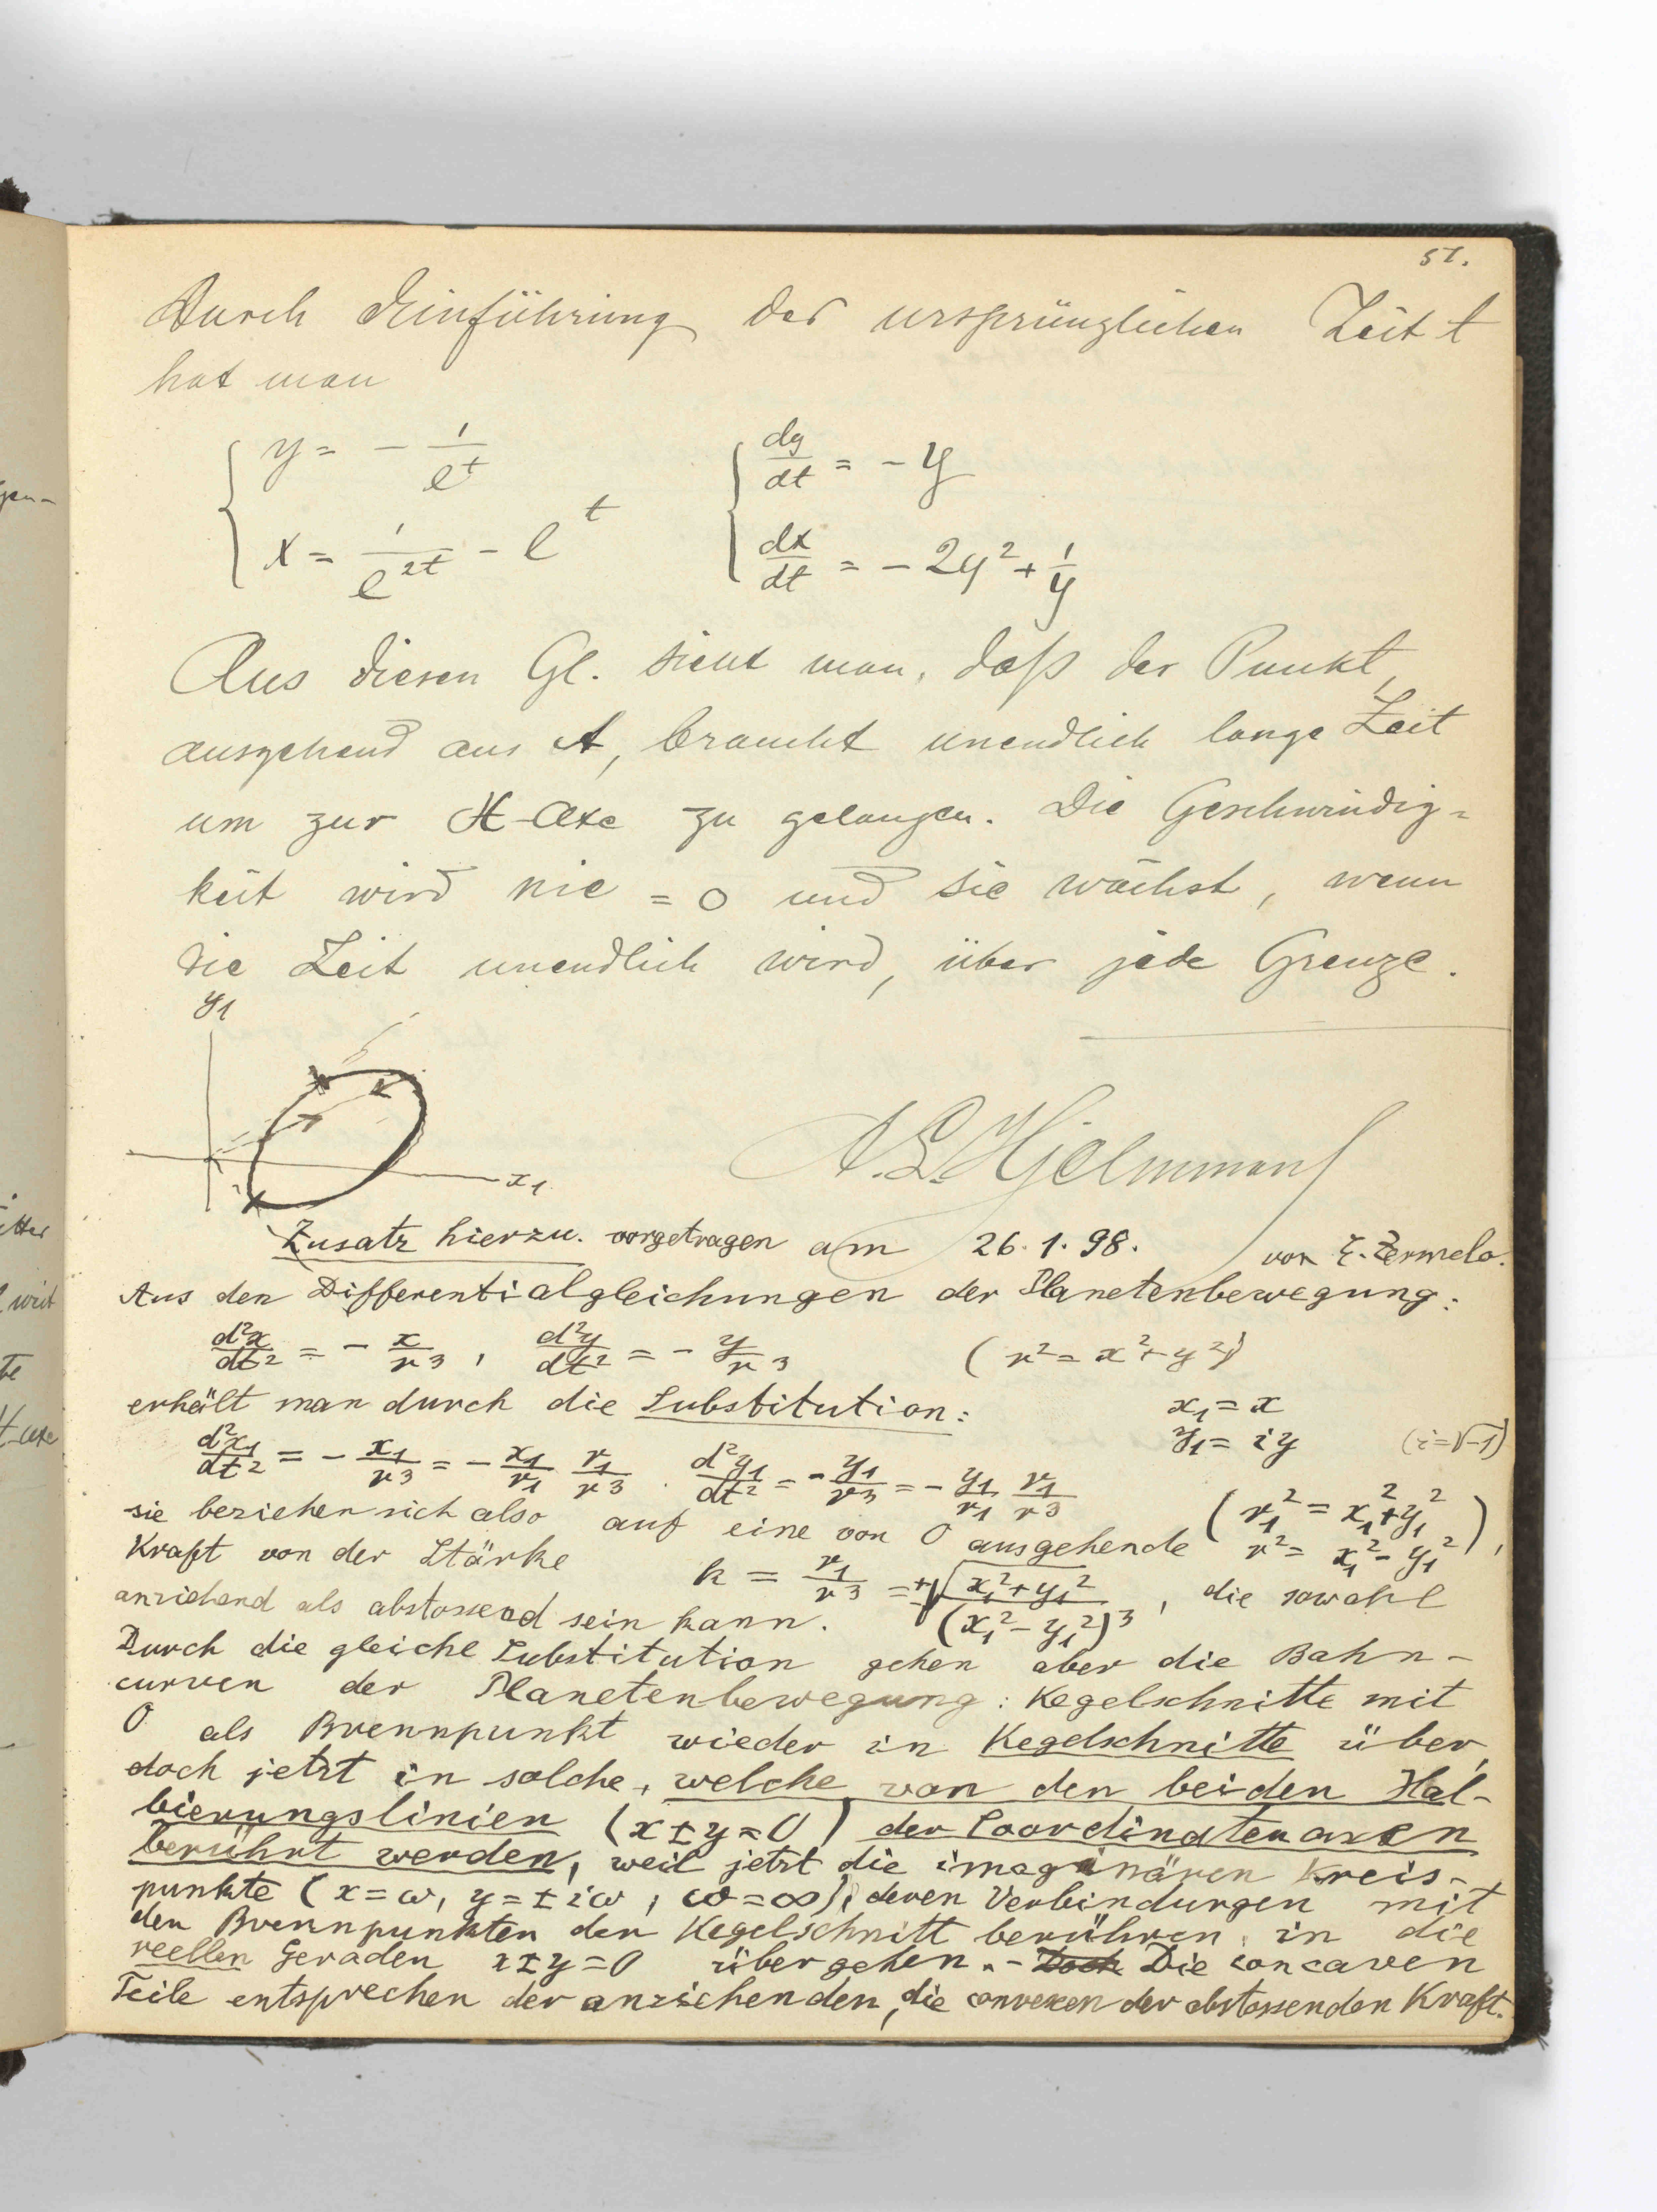 51.
Durch Einführung der ursprünglichen Zeit t
hat man
y = - 1/e^t    dy/dt = - y
x = 1/e^{2t} - e^t    dx/dt = - 2y² + 1/y
Aus diesen Gl. sieht man, daß der Punkt,
ausgehend aus A, braucht unendlich lange Zeit
um zur X-Axe zu gelangen. Die Geschwindig=
keit wird nie = 0 und sie wächst, wenn
die Zeit unendlich wird, über jede Grenze.
y₁
x₁
A. L. Hjelmman
Zusatz hierzu. vorgetragen am 26.1.98. von E. Zermelo.
Aus den Differentialgleichungen der Planetenbewegung:
d²x/dt² = - x/r³, d²y/dt² = - y/r³ (r² = x² + y²)
erhält man durch die Substitution: x₁ = x
y₁ = iy (i = √-1)
d²x₁/dt² = - x₁/r³ = - x₁/r₁ r₁/r³. d²y₁/dt² = - y₁/r³ = - y₁/r₁ r₁/r³
(r₁² = x₁² + y₁²
r² = x₁² - y₁²),
sie beziehen sich also auf eine von O ausgehende
Kraft von der Stärke k = r₁/r³ = +√(x₁² + y₁²)/(x₁² - y₁²)³, die sowohl
anziehend als abstossend sein kann.
Durch die gleiche Substitution gehen aber die Bahn-
curven der Planetenbewegung: Kegelschnitte mit
O als Brennpunkt wieder in Kegelschnitte über,
doch jetzt in solche, welche von den beiden Hal-
bierungslinien (x ± y = 0) der Coordinatenaxen
berührt werden, weil jetzt die imaginären Kreis-
punkte (x = ω, y = ± iω, ω = ∞), deren Verbindungen mit
den Brennpunkten der Kegelschnitt berühren, in die
reellen Geraden x ± y = 0 übergehen. - Doch Die concaven
Teile entsprechen der anziehenden, die convexen der abstossenden Kraft.